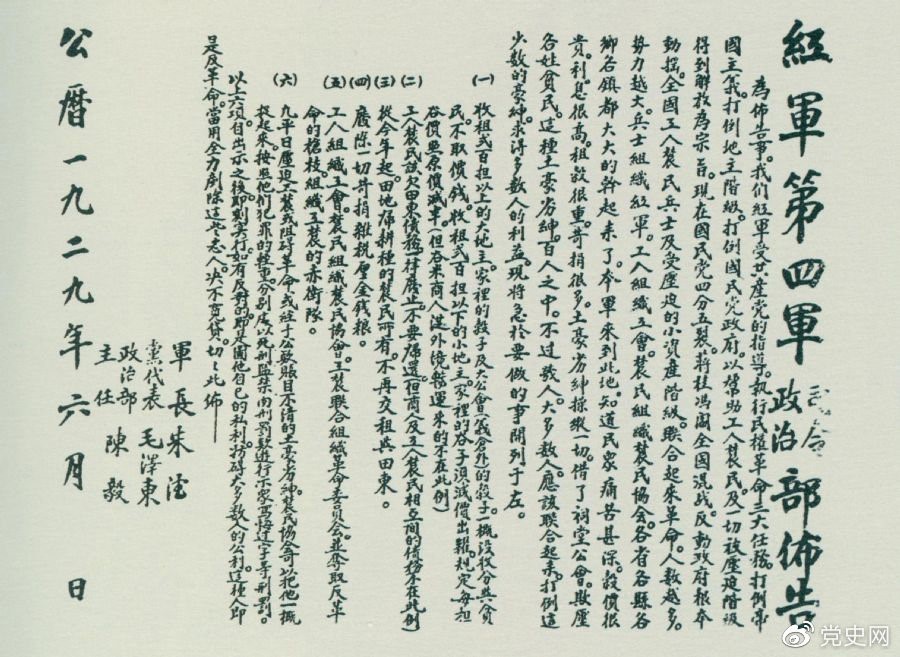 紅軍第四軍司令政治部佈告
為佈告事。我們紅軍受共產黨的指導。執行民權革命三大任務。打倒帝
國主義。打倒地主階級。打倒國民党政府。以幫助工人農民。及一切被壓迫階級
得到解放為宗旨。現在國民党四分五裂。蔣桂馮閻全國混战。反動政府根本
動搖。全國工人農民兵士及受壓迫的小資產階級。聯合起來革命。人數越多。
勢力越大。兵士組織紅軍。工人組織工會。農民組織農民協会。各省各縣各
鄉各鎮都大大的幹起來了。本軍來到此地。知道民眾痛苦甚深。穀價很
貴。利息很高。租穀很重。苛捐很多。土豪劣紳操縱一切。借了祠堂公會。欺壓
各姓貧民。這種土豪劣紳。百人之中。不过數人。大多數人。應該聯合起來。打倒這
少數的豪紳。求得多數人的利益。現將急於要做的事開列于左。
(一) 收租弍百担以上的大地主。家裡的穀子及大公會(義倉外)的穀子。一概没收分與貧
民。不取價錢。收租弍百担以下的小地主。家裡的谷子須減價出糶。規定每担
谷價照原價減半。(但谷米商人從外境辦運来的不在此例)
(二) 工人農民該欠田東債務。一律廢止。不要歸還。(但商人及工人農民相互間的債務不在此例)
(三) 從今年起。田地歸耕種的農民所有。不再交租與田東。
(四) 廢除一切苛捐雜税厘金錢粮。
(五) 工人組織工會。農民組織農民協會。工農聯合組織革命委員会。並奪取反革
命的槍枝組織工農的赤衛隊。
(六) 凡平日壓迫工農或阻碍革命。或經手公款賬目不清的土豪劣紳。農民協會可以把他一概
捉起來。按照他们犯罪的輕重。分別處以死刑監禁肉刑罰款遊行示家寫悔过字等刑罰。
以上六項自出示之後。即刻实行。如有反對的。即是圖他自己的私利。妨碍大多數人的公利。這種人即
是反革命。當用全力剷除這些惡人。决不寬貸。切切此佈
軍長 朱德
黨代表 毛澤東
政治部主任 陳毅
公曆一九二九年六月 日
党史网